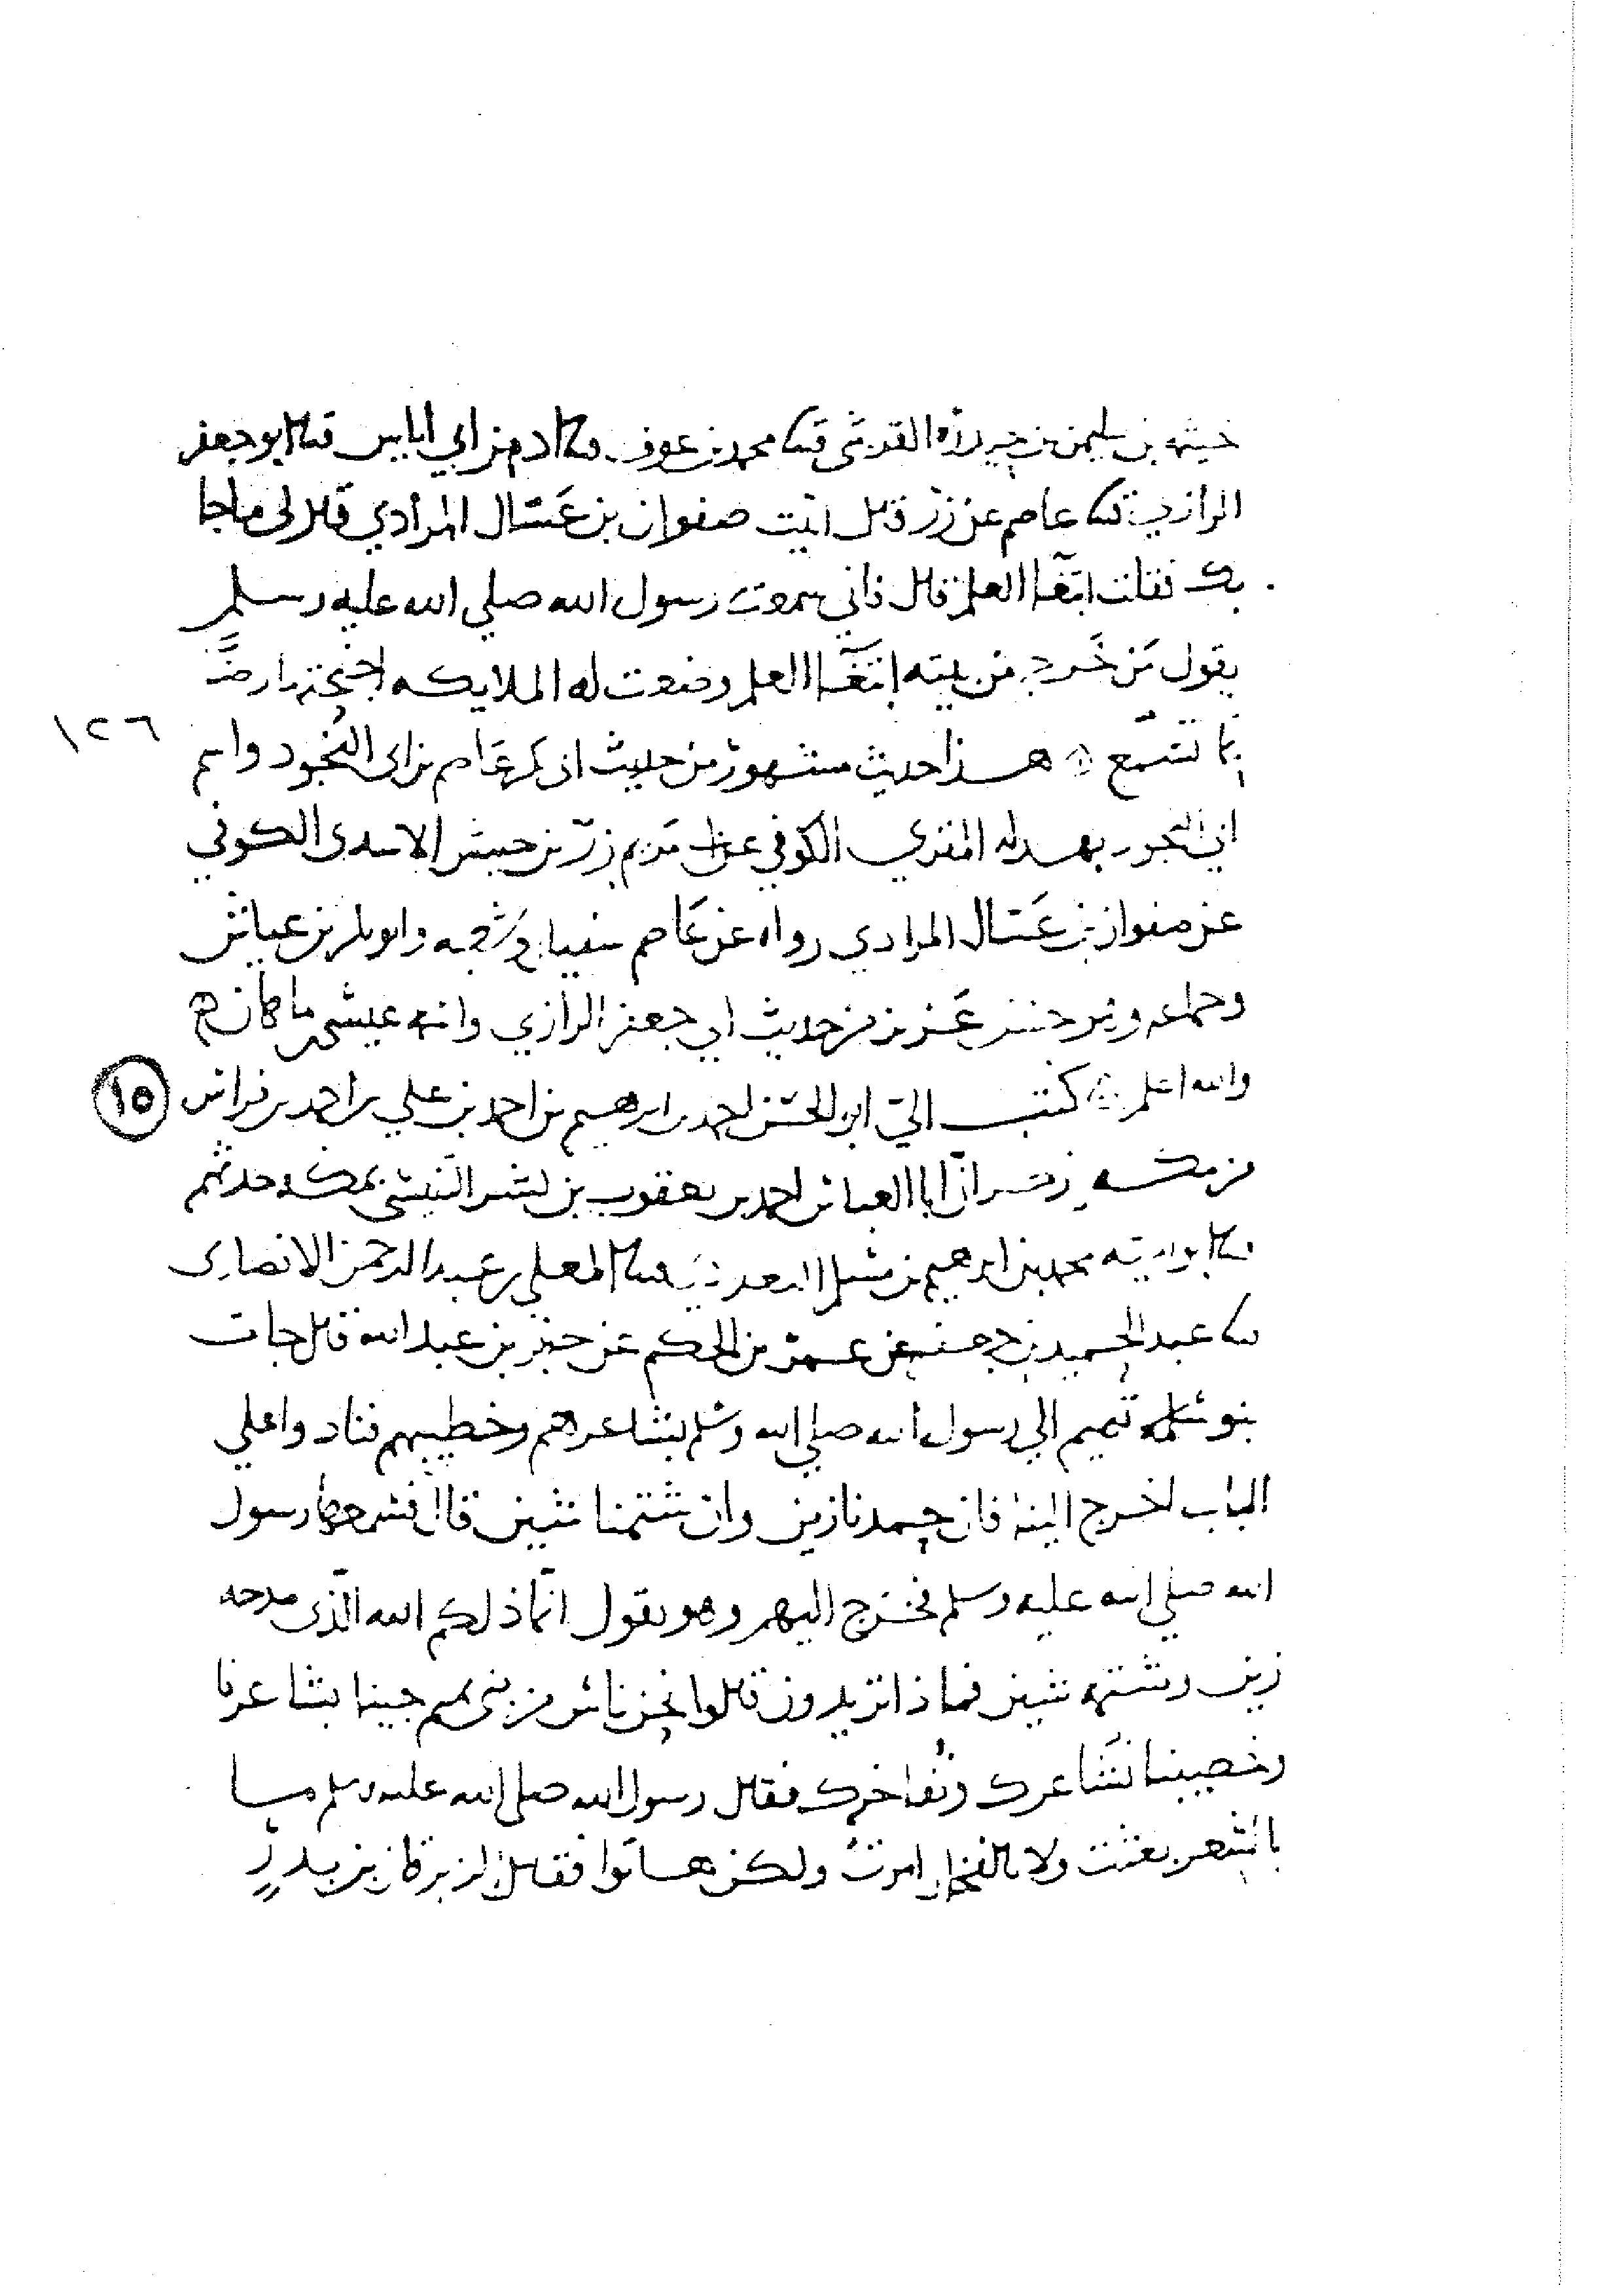 خيثمه بن سليمن بن حيدرة القرشي قثنا محمد بن عوف قثنا ادم بن ابي اياس قثنا ابو جعفر
الرازي قثنا عاصم عن زر قال اتيت صفوان بن عَسّال المرادي فقال لي ما جا
بك فقلت ابتغا العلم قال فاني سمعت رسول الله صلي الله عليه وسلم
يقول مَن خَرج من بيته ابتغآ العلم وضعت له الملايكه اجنحتها رضًا
بما تسمع هـذا حديث مشهور من حديث ابي بكر عَاصم بن ابي النُجود واسم
ابي النجود بهدله المقري الكوفي عن ابي مَريم زرّ بن حبيش الاسدي الكوفي
عن صفوان بن عَسّال المرادي رواه عن عَاصم سفيان وشعبه وابو بكر بن عياش
وجماعه وهو حسن عَزيز من حديث ابي جعفر الرازي واسمه عيسى بن ماهان
والله اعلم كتب اليّ ابو الحسَن احمد بن ابرهيم بن احمد بن علي بن احمد بن فراس ١٥
من مكه وذكر انّ ابا العباس احمد بن يعقوب بن بشر النَيسي بمكه حدثهم
ثنا ابو اميّه محمد بن ابرهيم بن مسلم البغدادي قثنا المعلي بن عبد الرحمن الانصاري
ثنا عبد الحميد بن جعفر عن عمر بن الحكم عن جابر بن عبد الله قال جات
بنو تميم الي رسول الله صلي الله وسَلم بشاعرهم وخطيبهم فنادوا علي
الباب اخرج الينا فان حمدنا زين وان شتمنا شين قال فسمعها رسول
الله صلي الله عليه وسلم فخرج اليهم وهو يقول انّما ذلكم الله الّذي مدحه
زين وشتمه شين فماذا تريدون قالوا نحن ناسٌ من بني تميم جينا بشاعرنا
وخطيبنا نُشاعرك ونُفاخرك فقال رسول الله صلي الله عليه وسلم ما
بالشعر بعثت ولا بالفخار امرت ولكن هاتوا فقال الزبرقان بن بدرٍ
١٢٦